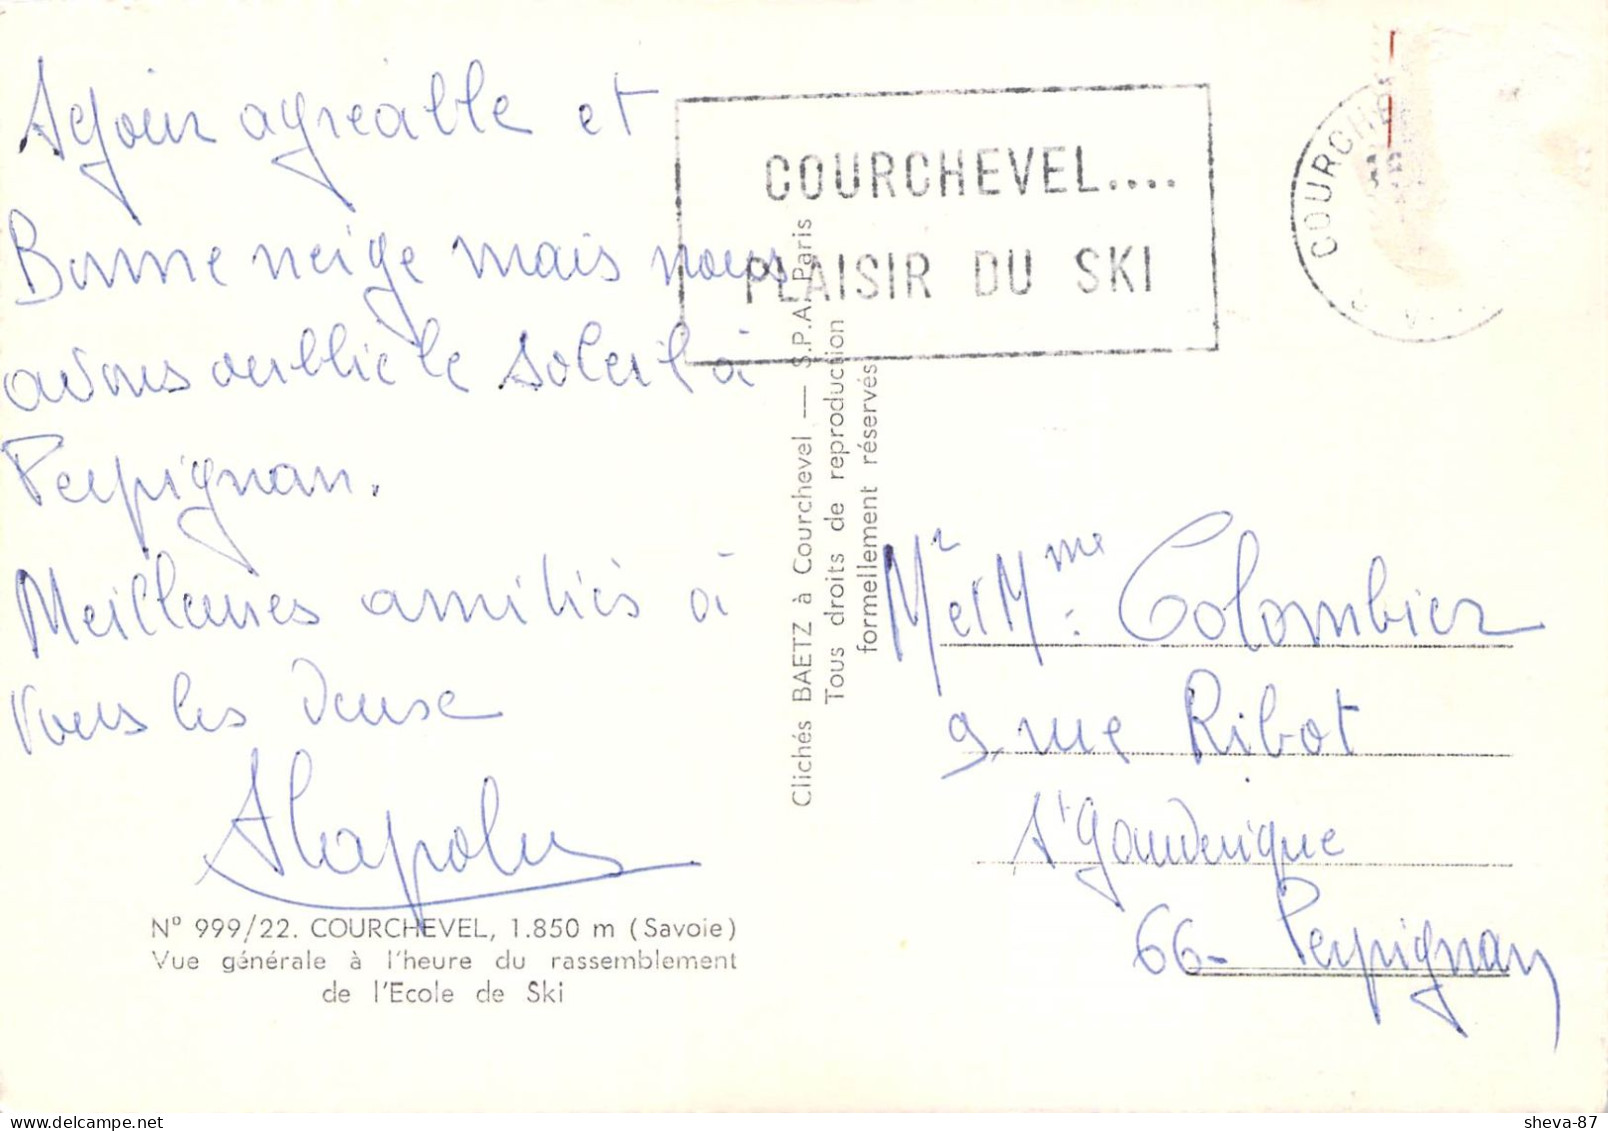 Séjour agréable et
Bonne neige mais nous
avons oublié le soleil à
Perpignan.
Meilleures amitiés à
vous les deux
N° 999/22. COURCHEVEL, 1.850 m (Savoie)
Vue générale à l'heure du rassemblement
de l'Ecole de Ski
COURCHEVEL....
PLAISIR DU SKI
Clichés BAETZ à Courchevel — S.P.A. Paris
Tous droits de reproduction
formellement réservés
COURCHE
Mr et Mme Colombier
9 rue Ribot
St Gauderique
66- Perpignan
delcampe.net
sheva-87